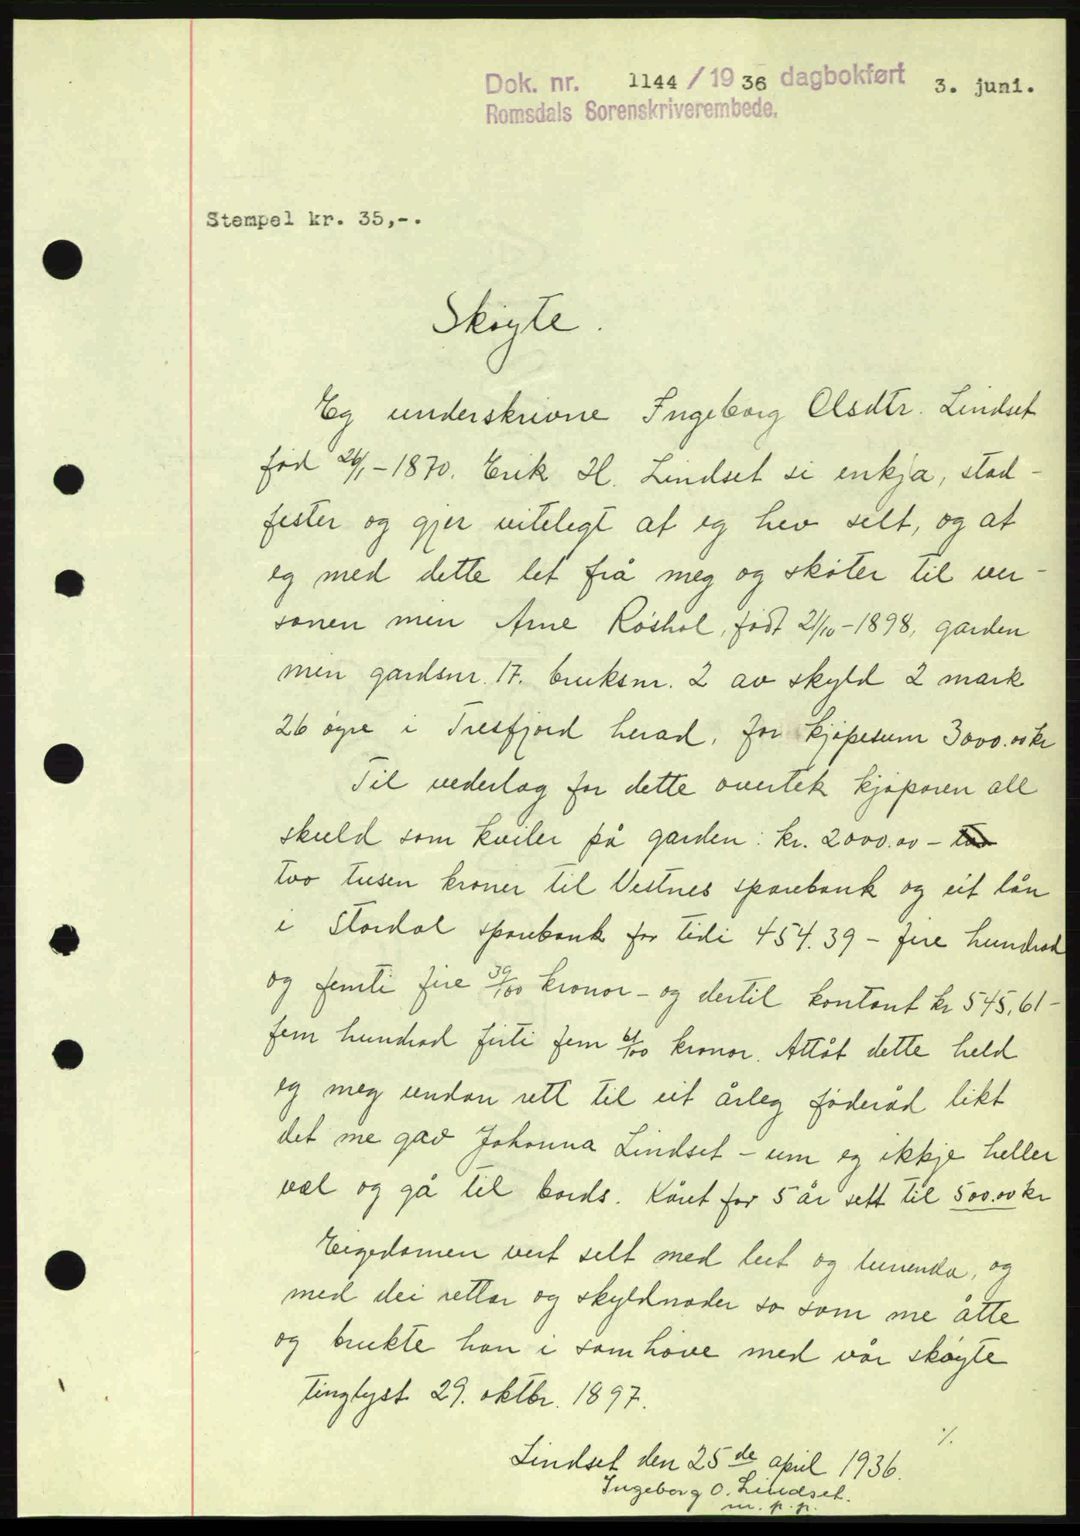 Dok. nr. 1144 / 19 36 dagbokført 3. juni.
Romsdals Sorenskriverembede.
Stempel kr. 35,-.
Skøyte.
Eg underskrivne Ingeborg Olsdtr. Lindset
fød 26/1 - 1870. Erik H. Lindset si enkja, stad-
fester og gjer viteligt at eg hev selt, og at
eg med dette let frå meg og skøter til ver-
sonen min Arne Røshol, født 21/10 - 1898, garden
min gardsnr. 17. bruksnr. 2 av skyld 2 mark
26 øyre i Tresfjord herad, for kjøpesum 3000.00 kr
Til vederlag for dette overtek kjøparen all
skuld som kviler på garden: kr. 2000.00 -
tvo tusen kroner til Vestnes sparebank og eit lån
i Stordal sparebank for tidi 454.39 - fire hundrad
og femti fire 39/100 kronor - og dertil kontant kr 545,61-
fem hundrad firti fem 61/100 kronor. Attåt dette held
eg meg undan rett til eit årleg føderåd likt
det me gav Johanna Lindset - um eg ikkje heller
val og gå til bords. Kåret for 5 år sett til 500.00 kr
Eigedomen vert selt med lut og lunenda, og
med dei rettar og skyldnader so som me åtte
og brukte han i samhøve med vår skøyte
tinglyst 29. oktbr. 1897.
·/.
Lindset den 25de april 1936.
Ingeborg O. Lindset.
m. p. p.